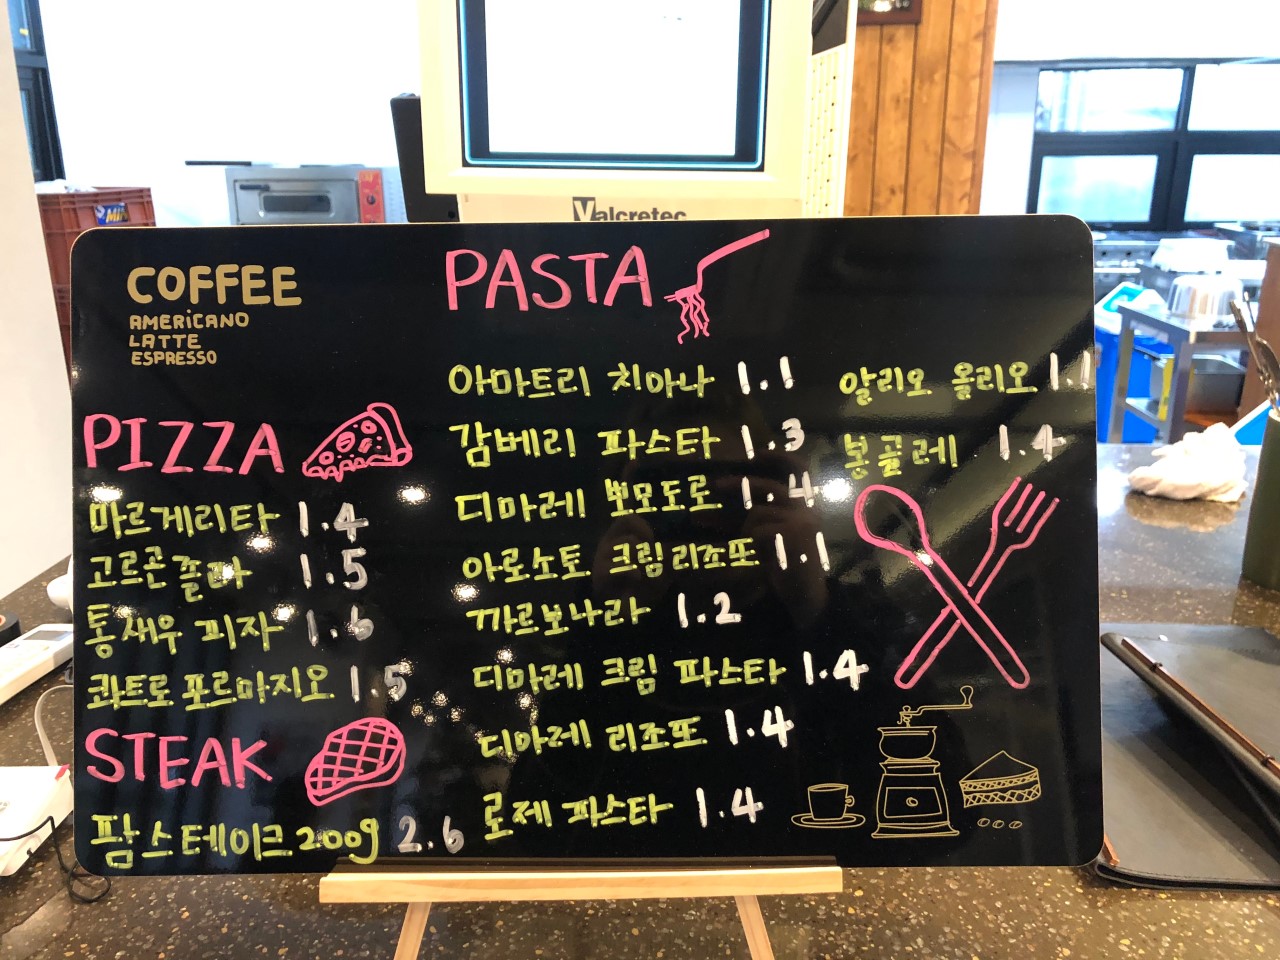 Valcretec
MIN
COFFEE
AMERICANO
LATTE
ESPRESSO
PIZZA
마르게리타 1.4
고르곤졸라 1.5
통새우 피자 1.6
콰트로 포르마지오 1.5
STEAK
팜 스테이크 200g 2.6
PASTA
아마트리 치아나 1.1
감베리 파스타 1.3
디마레 뽀모도로 1.4
아로소토 크림리조또 1.1
까르보나라 1.2
디마레 크림 파스타 1.4
디마레 리조또 1.4
로제 파스타 1.4
알리오 올리오 1.1
봉골레 1.4